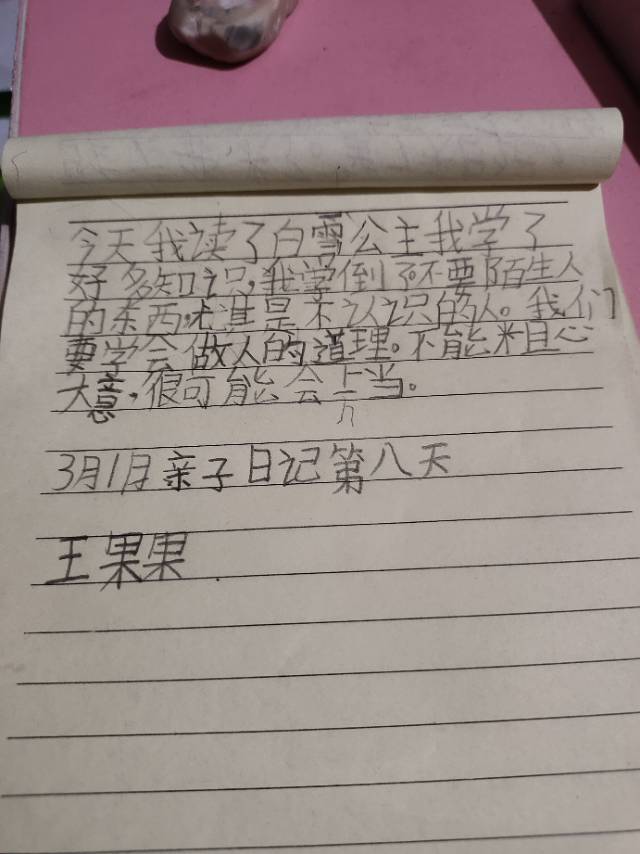 今天我读了白雪公主我学了
好多知识,我学倒了不要陌生人
的东西,尤谁是不认识的人。我们
要学会做人的道理。不能粗心
大意,很可能会上当。
3月1月亲子日记第八天
王果果